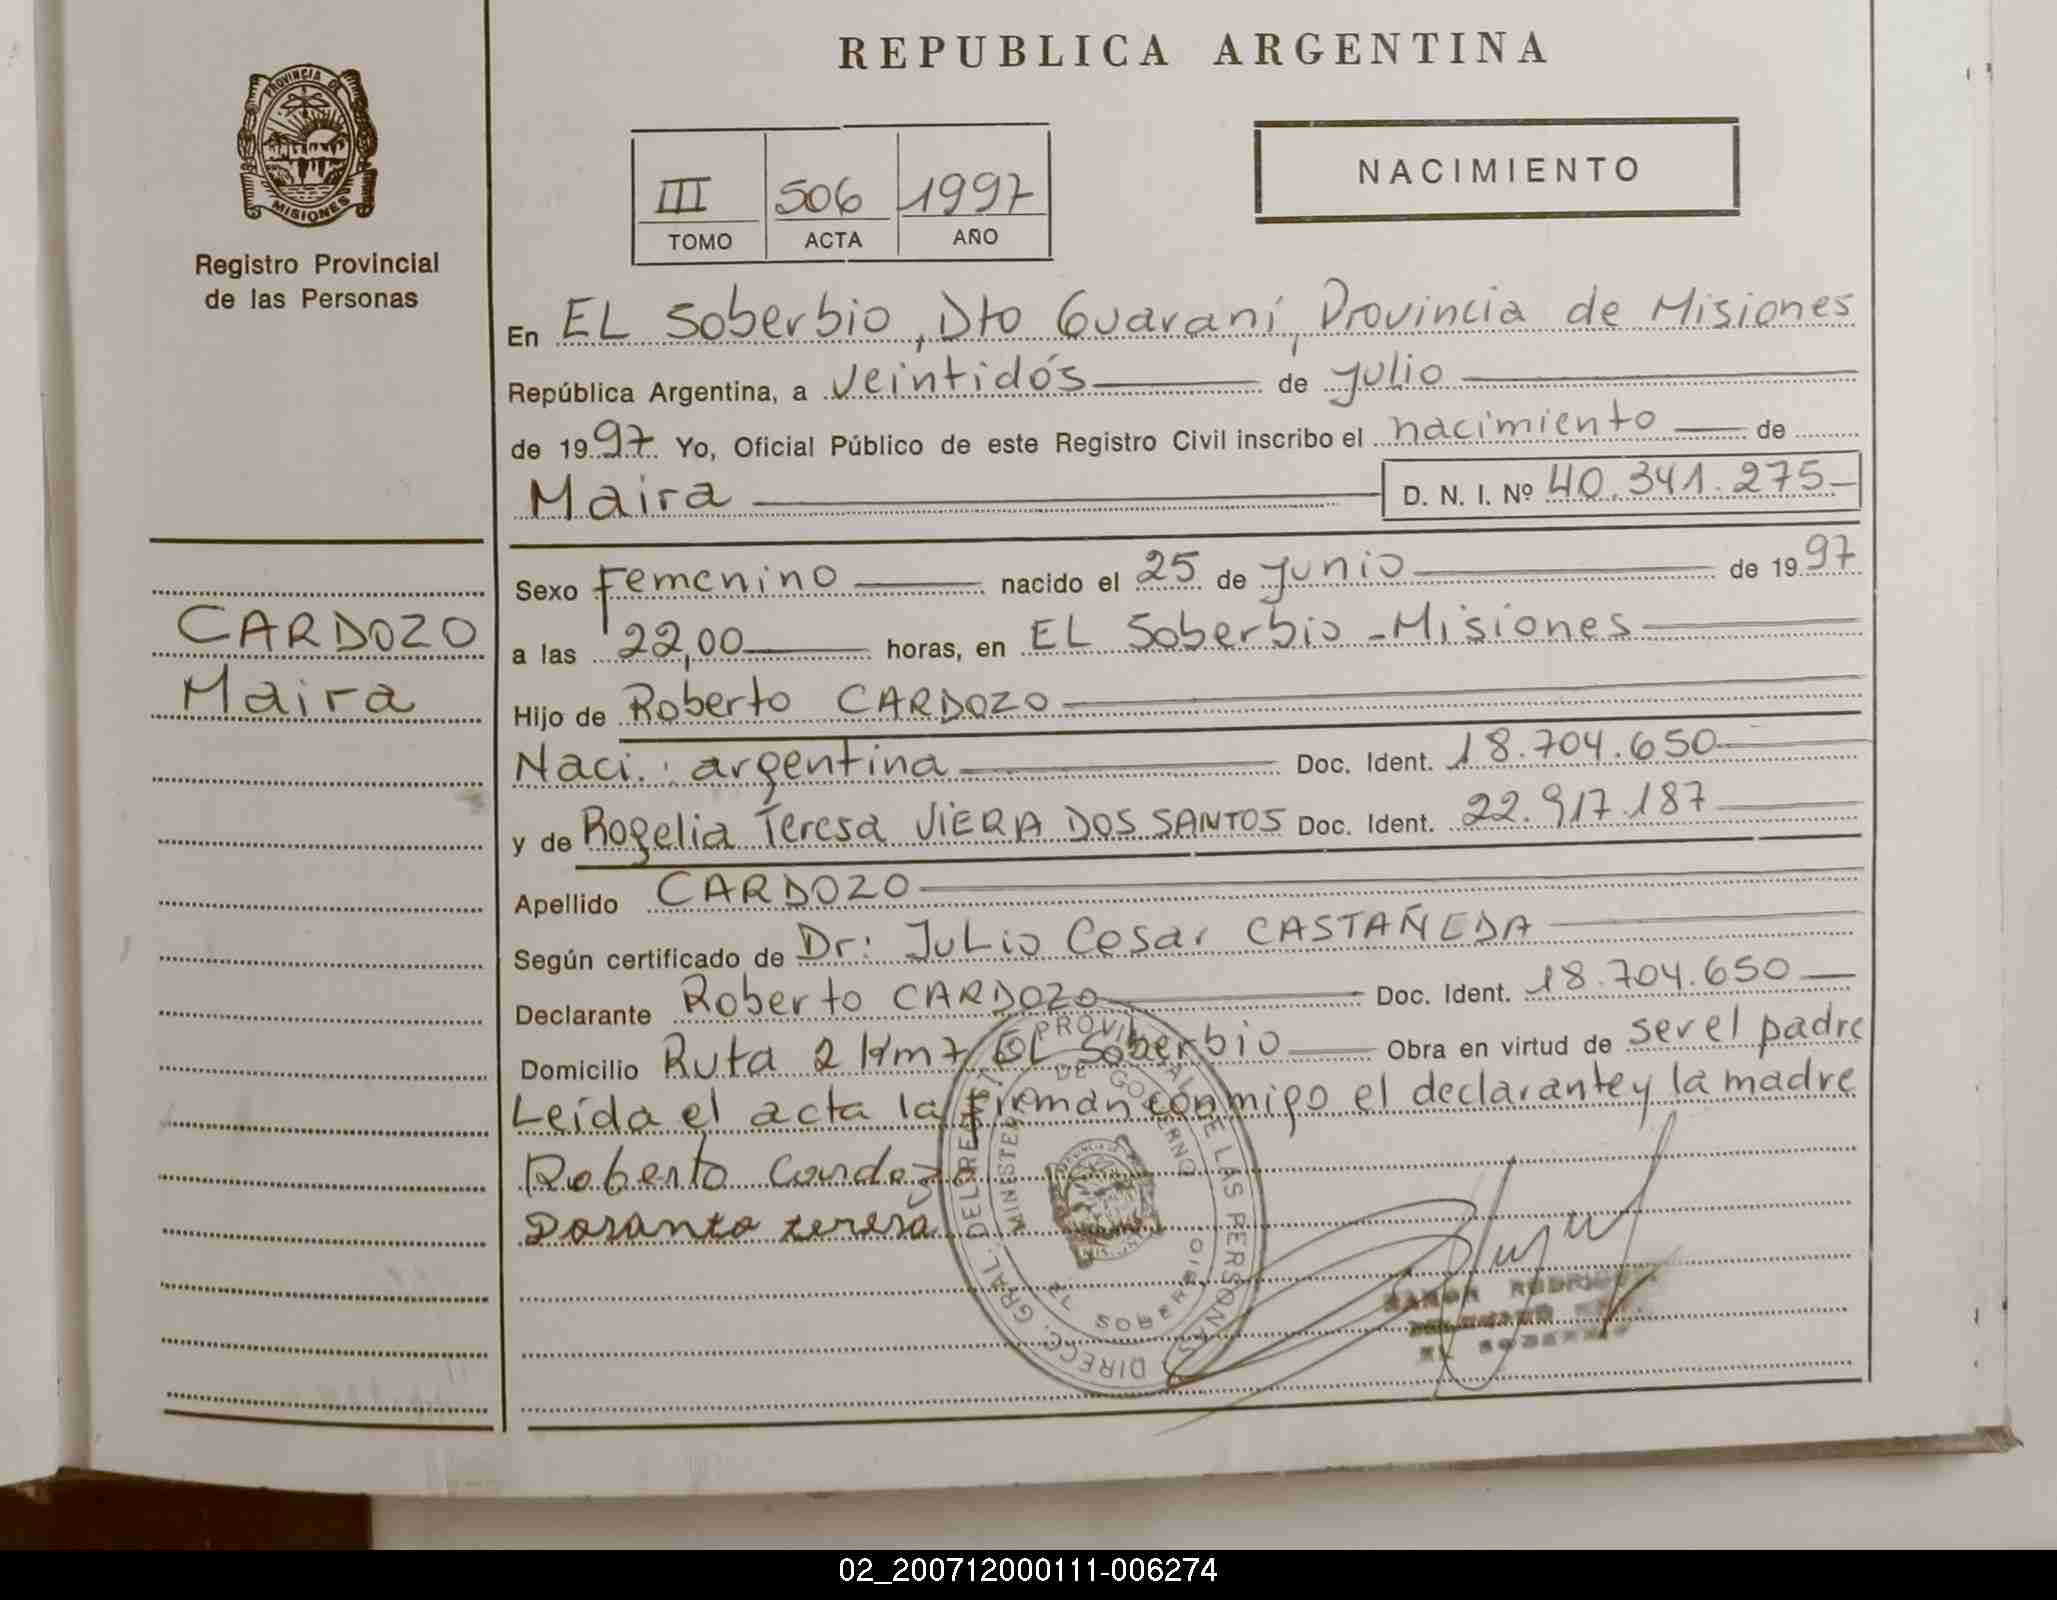 REPUBLICA ARGENTINA
PROVINCIA DE
MISIONES
Registro Provincial
de las Personas
III 506 1997
TOMO ACTA AÑO
NACIMIENTO
En EL Soberbio, Dto Guaraní, Provincia de Misiones
República Argentina, a veintidós de julio
de 1997 Yo, Oficial Público de este Registro Civil inscribo el nacimiento de
Maira D. N. I. Nº 40.341.275
CARDOZO
Maira
Sexo Femenino nacido el 25 de junio de 1997
a las 22,00 horas, en EL Soberbio - Misiones
Hijo de Roberto CARDOZO
Naci.: argentina Doc. Ident. 18.704.650
y de Rogelia Teresa VIERA DOS SANTOS Doc. Ident. 22.917.187
Apellido CARDOZO
Según certificado de Dr: Julio Cesar CASTAÑEDA
Declarante Roberto CARDOZO Doc. Ident. 18.704.650
Domicilio Ruta 2 Km 7 EL Soberbio Obra en virtud de ser el padre
Leída el acta la firman conmigo el declarante y la madre
Roberto Cardozo
Dosanto teresa
DIRECC. GRAL. DEL REGIST. PROVINCIAL DE LAS PERSONAS
MINISTERIO DE GOBIERNO
EL SOBERBIO
RAMON RODRIGUEZ
EL SOBERBIO
02_200712000111-006274